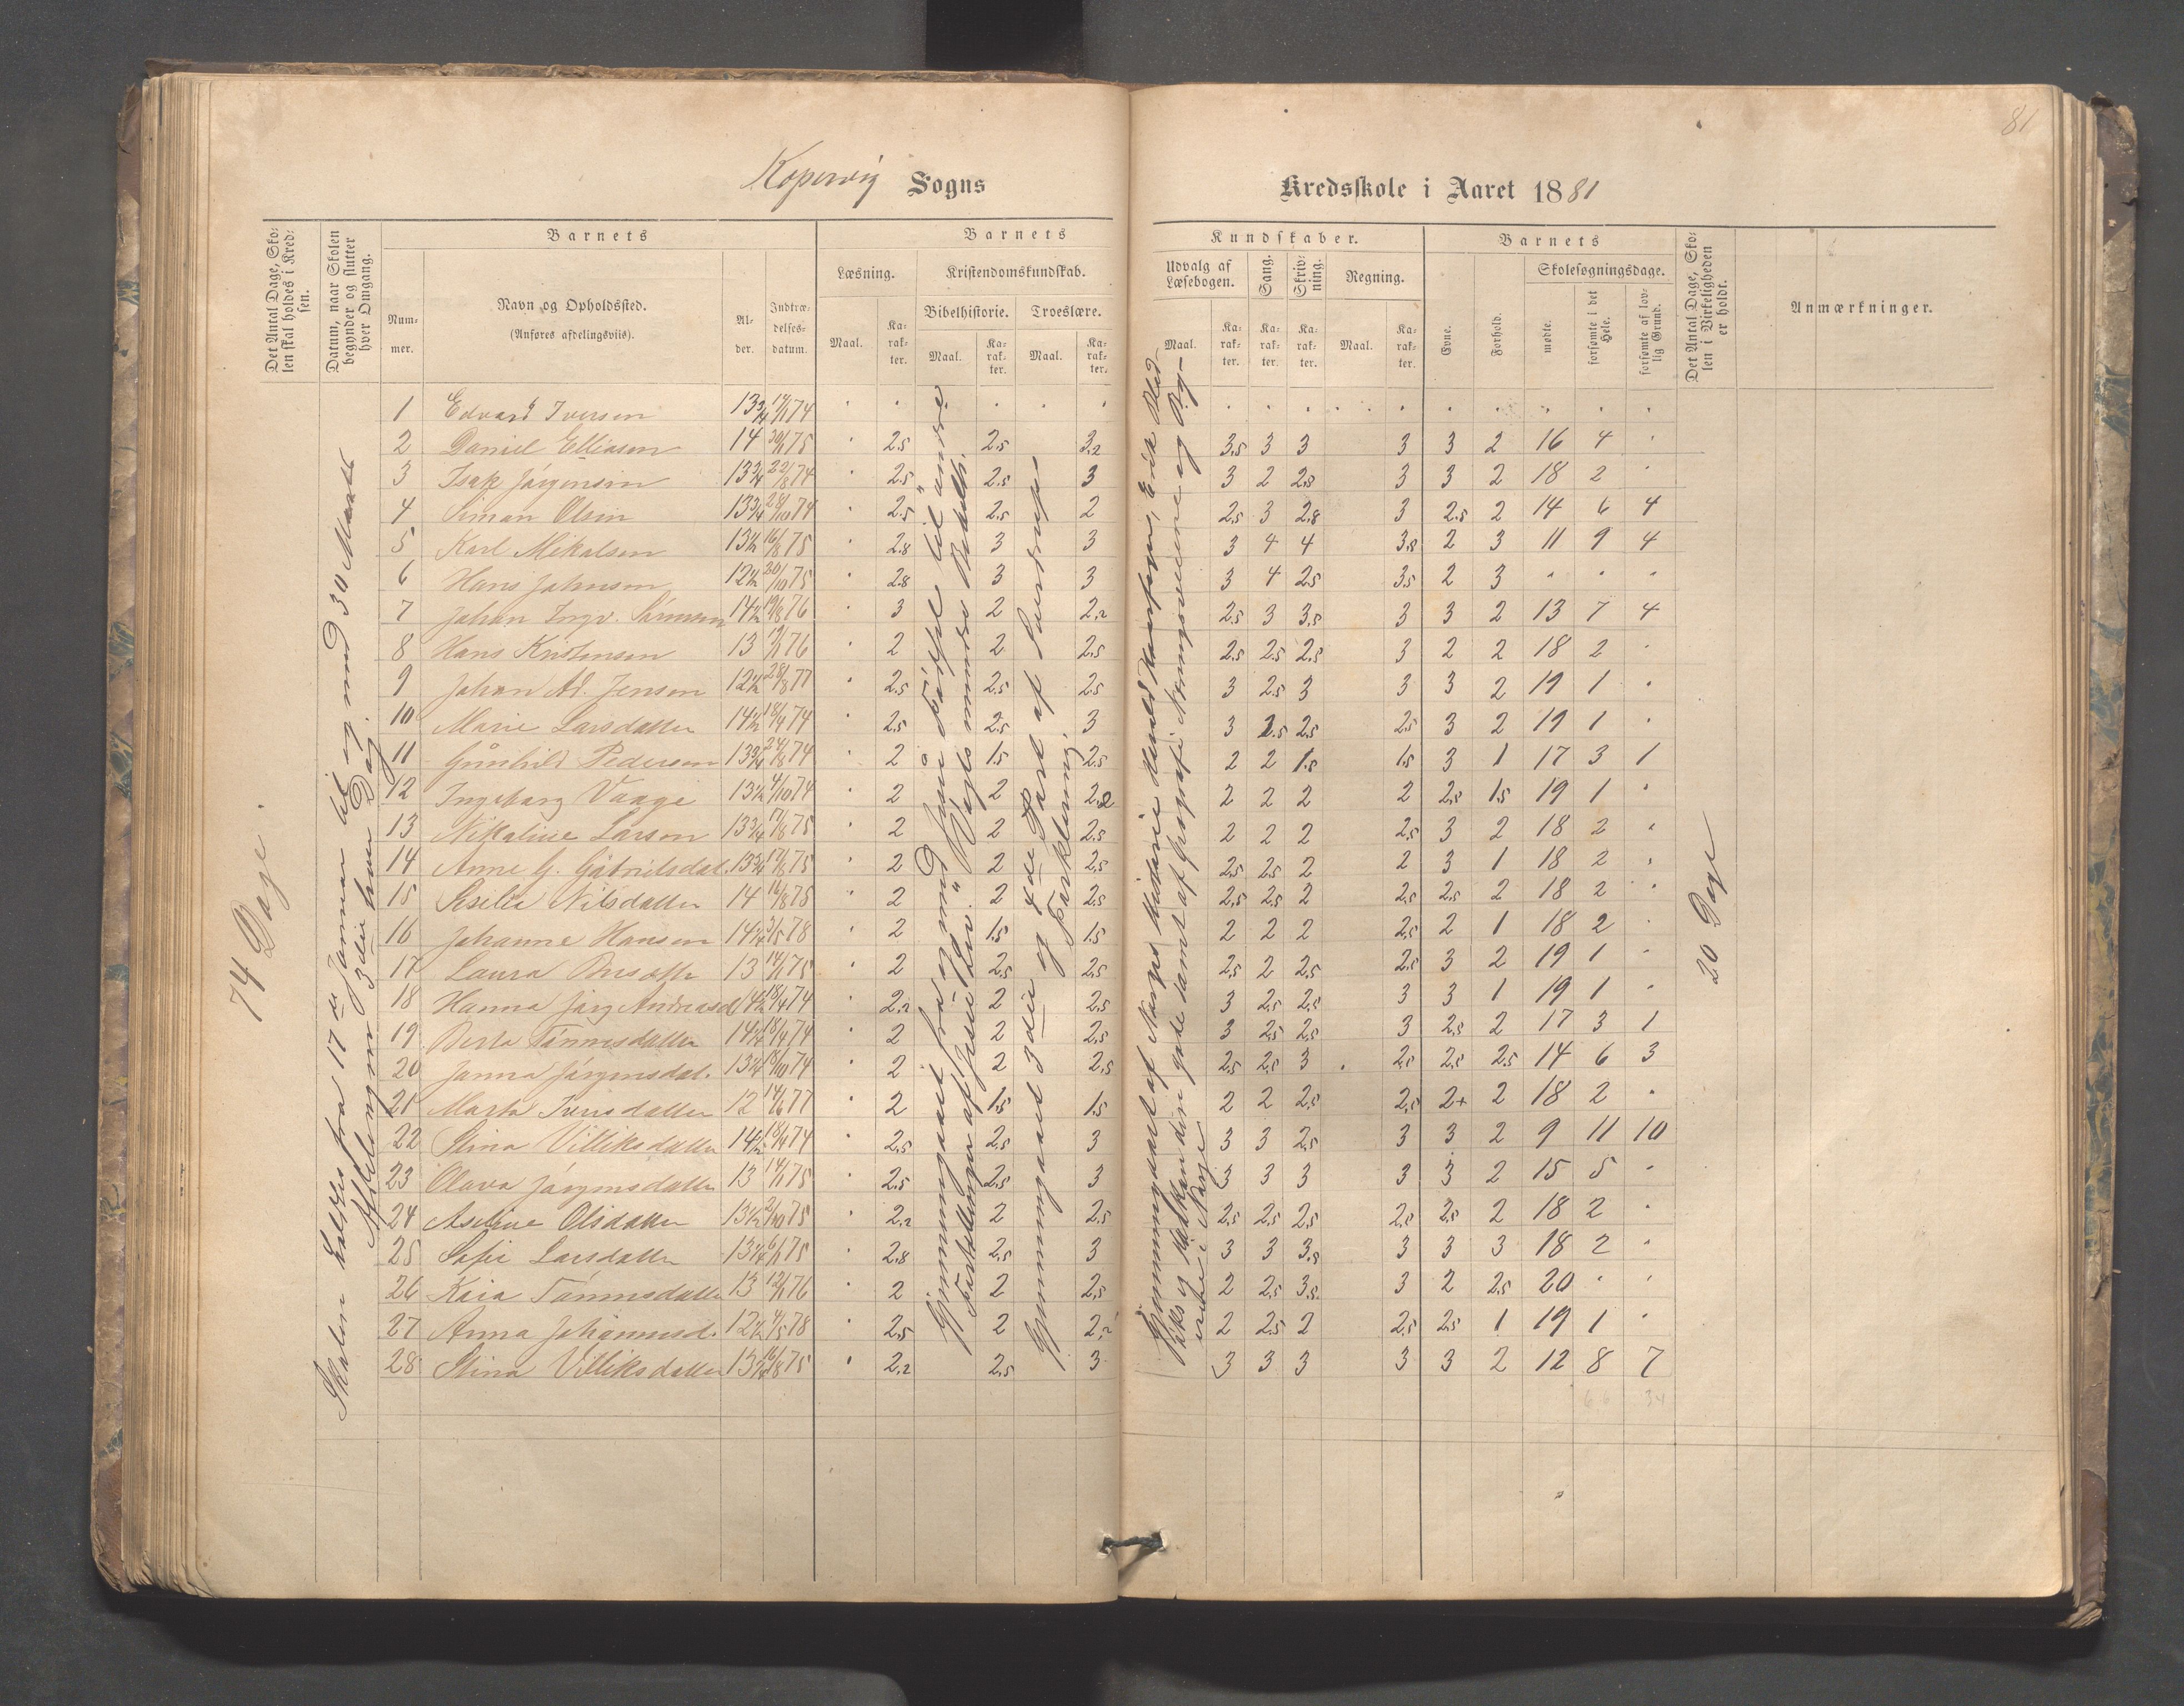 81
Kopervig Sogns Kredsskole i Aaret 1881
Det Antal Dage, Sko-
len skal holdes i Kred-
sen.
Datum, naar Skolen
begynder og slutter
hver Omgang.
Barnets
Num-
mer.
Navn og Opholdssted.
(Anføres afdelingsviis).
Al-
der.
Indtræ-
delses-
datum.
Barnets Kundskaber.
Læsning.
Maal.
Ka-
rak-
ter.
Kristendomskundskab.
Bibelhistorie.
Maal.
Ka-
rak-
ter.
Troeslære.
Maal.
Ka-
rak-
ter.
Udvalg af
Læsebogen.
Maal.
Ka-
rak-
ter.
Sang.
Ka-
rak-
ter.
Skriv-
ning.
Ka-
rak-
ter.
Regning.
Maal.
Ka-
rak-
ter.
Barnets
Evne.
Forhold.
Skolesøgningsdage.
mødte.
forsømte i det
Hele.
forsømte af lov-
lig Grund.
Det Antal Dage, Sko-
len i Virkeligheden
er holdt.
Anmærkninger.
74 Dage.
Skolen holdes fra 17de Januar til og med 30 Marts
Afdelingen 3die hver Dag.
1 Edvard Iversen 13 3/4 74
2 Daniel Elliasen 14 75 2.5 2.5 3.2 3.5 3 3 3 3 2 16 4
3 Isak Jörgensen 13 3/4 22/8 74 2.5 2.5 3 3 2 2.8 3 3 2 18 2
4 Simon Olsen 13 3/4 28/10 74 2.5 2.5 2 2.5 3 2.8 3 2.5 2 14 6 4
5 Karl Mikalsen 13 1/2 16/8 75 2.8 3 3 3 4 4 3.8 2 3 11 9 4
6 Hans Johnsen 12 1/2 20/10 75 2.8 3 3 3 4 2.5 3.5 2 3
7 Johan Ingv. 14 1/2 19/8 76 3 2 2.2 2.5 3 3.5 3 3 2 13 7 4
8 Hans Kristensen 13 76 2 2 2.5 2.5 2.5 2.5 3 2 2 18 2
9 Johan Ad. Jensen 12 1/2 28/8 77 2.5 2.5 2.5 3 2.5 3 3 3 2 19 1
10 Marie Larsdatter 14 1/2 18/4 74 2.5 2.5 3 3 2.5 2.5 2.5 3 2 19 1
11 Gunhild Pedersen 13 3/4 24/8 74 2 1.5 2.5 2 2 1.5 1.5 3 1 17 3 1
12 Ingeborg Vaage 13 1/2 4/10 74 2 2 2.2 2 2 2 2 2.5 1.5 19 1
13 Nikoline Larsen 13 3/4 17/8 75 2 2 2.5 2 2 2 2.5 3 2 18 2
14 Anne G. Gabrielsdat. 13 3/4 17/8 75 2 2 2.5 2.5 2.5 2 2 3 1 18 2
15 Sesilia Nilsdatter 14 16/8 75 2 2 2.5 2.5 2.5 2 2.5 2.5 2 18 2
16 Johanne Hansen 14 1/4 3/5 78 2 1.5 1.5 2 2 2 2.5 2 1 18 2
17 Laura 13 14/1 75 2 2.5 2.5 2.5 2 2.5 2.5 3 2 19 1
18 Hanna Jörg. Andreasd. 14 1/2 18/4 74 2.2 2 2.5 3 2.5 2.5 3 3 1 19 1
19 Berta Tönnesdatter 14 1/4 18/4 74 2 2 2.5 3 2.5 2.5 3 2.5 2 17 3 1
20 Janna Jörgensdat. 13 1/4 18/10 74 2 2 2.5 2.5 2.5 3 2.5 2.5 2.5 14 6 3
21 Marta Iversdatter 12 14/6 77 2 1.5 1.5 2 2 2.5 2.5 2+ 2 18 2
22 Stina Villiksdatter 14 1/2 18/4 74 2.5 2.5 3 3 3 2.5 3 3 2 9 11 10
23 Olava Jörgensdatter 13 14/1 75 2.5 2.5 3 3 3 3 3 3 2 15 5
24 Aseline Olsdatter 13 1/2 2/10 75 2.2 2 2.5 2.5 2.5 2.5 2.5 2.5 2 18 2
25 Sofie Larsdatter 13 1/4 6/1 75 2.8 2.5 3 3 3 3.5 3 3 3 18 2
26 Kaia Tönnesdatter 13 12/1 76 2 2 2.5 2 2.5 3.5 3 2 2.5 20
27 Anna Johannesd. 12 1/2 4/5 78 2.5 2 2.2 2 2.5 2 2.5 2.5 1 19 1
28 Stina Villiksdatter 13 3/4 16/8 75 2.2 2.5 3 3 3 3 3 3 2 12 8 7
66 34
Gjennemgaaet 3die og 4de Part af
Forklaring.
Gjennemgaaet af Norges Historie Harald Haarfager, Erik Blod-
økse og Haakon den gode samt af Geografi
20 Dage